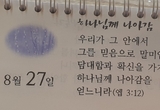 하나님께 나아감
우리가 그 안에서
그를 믿음으로 말미
담대함과 확신을 가
하나님께 나아감을
얻느니라(엡 3:12)
8월 27일